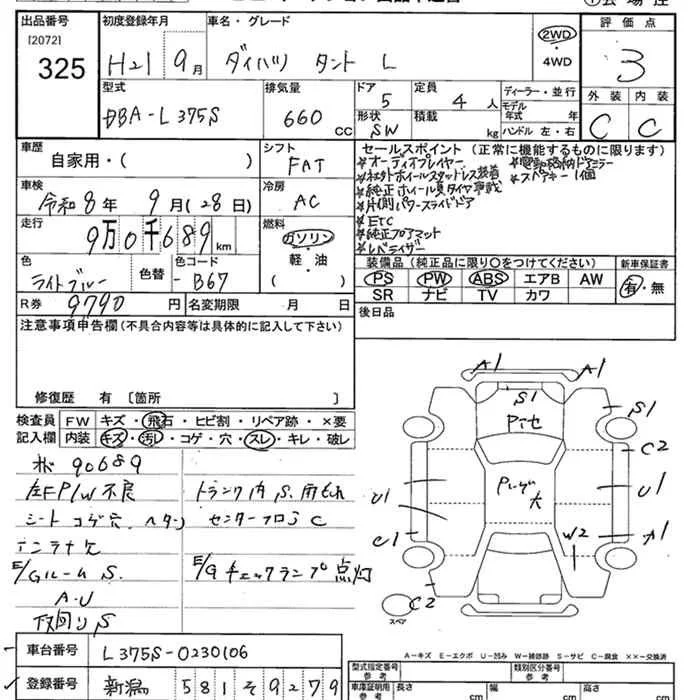 出品番号 初度登録年月 車名・グレード 評価点
[2072]
325 H21 9月 ダイハツ タント L 2WD・4WD 3
型式 排気量 ドア 定員 ディーラー・並行 外装 内装
DBA-L375S 660 CC 5 4人 モデル年式 年 C C
形状 積載 ハンドル 左・右
SW kg
車歴 シフト セールスポイント(正常に機能するものに限ります)
自家用・( ) FAT
*オーディオプレイヤー *電動格納ドアミラー
*社外ホイールスタッドレス装着 *スペアキー1個
車検 冷房 *純正ホイール夏タイヤ車載
令和8年 9月(28日) AC *片側パワースライドドア
*ETC
走行 燃料 *純正フロアマット
9万0千689km ガソリン *レベライザー
軽・油
( )
色 色替 色コード 装備品(純正品に限り○をつけてください) 新車保証書
ライトブルー B67 PS PW ABS エアB AW 有・無
SR ナビ TV カワ
R券 9790円 名変期限 月 日 後日品
注意事項申告欄(不具合内容等は具体的に記入して下さい)
修復歴 有 [箇所 ]
検査員記入欄 FW キズ・飛石・ヒビ割・リペア跡・×要
内装 キズ・汚レ・コゲ・穴・スレ・キレ・破レ
90689
左FP/W不良 トランク内 S.
シートコゲ穴. センターフロア C
アンテナ欠
E/Gルーム S. E/Gチェックランプ点灯
A.U
下回り S
A1 A1
S1 S1
C2
U1 U1
C1 W2 A1
C2
大
スペア
A-キズ E-エクボ U-凹み W-補修跡 S-サビ C-腐食 ××-交換済
車台番号 L375S-0230106
型式指定番号 参考 類別区分番号 参考
登録番号 新潟 581 そ 9279
車庫証明用 参考 長さ cm 幅 cm 高さ cm